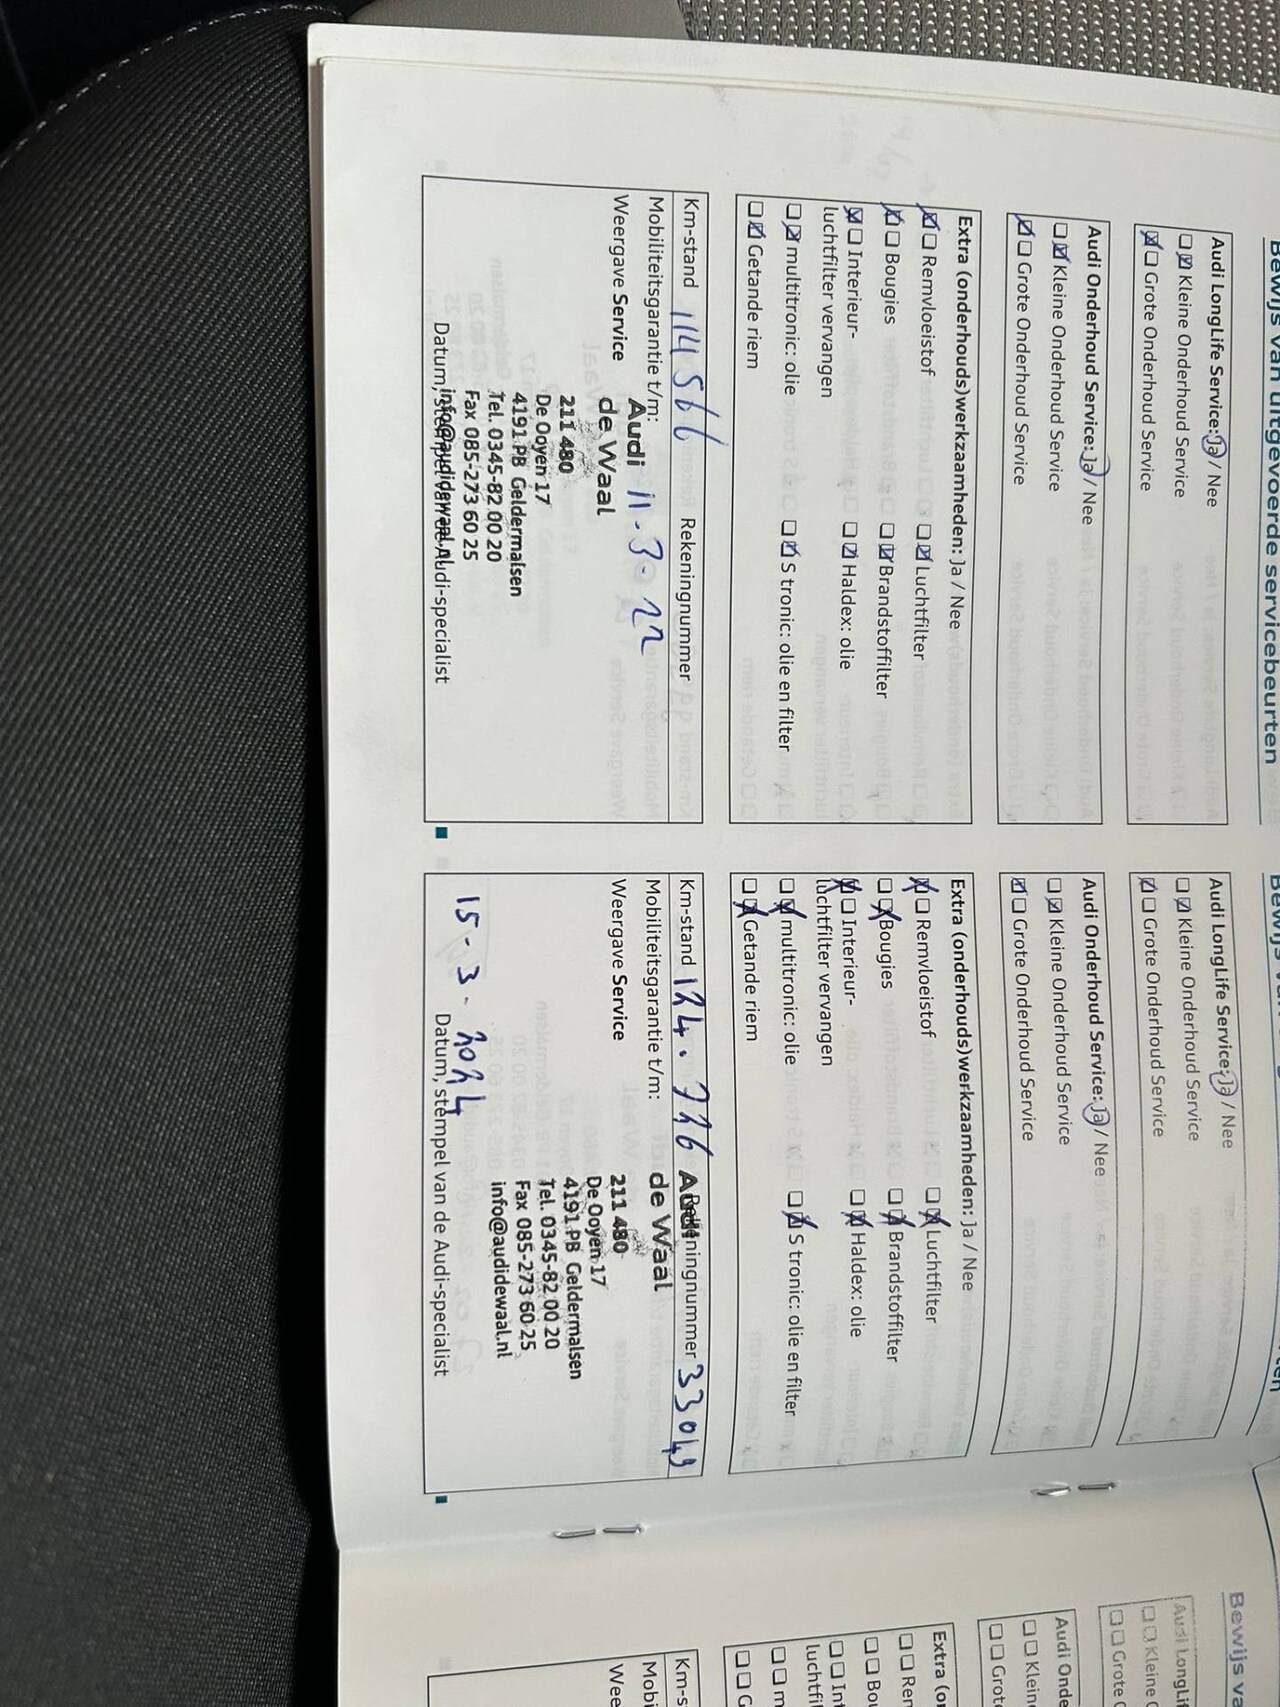 Bewijs van uitgevoerde servicebeurten
Audi LongLife Service: Ja / Nee
Kleine Onderhoud Service
Grote Onderhoud Service
Audi Onderhoud Service: Ja / Nee
Kleine Onderhoud Service
Grote Onderhoud Service
Extra (onderhouds)werkzaamheden: Ja / Nee
Remvloeistof Luchtfilter
Bougies Brandstoffilter
Interieur- Haldex: olie
luchtfilter vervangen
multitronic: olie S tronic: olie en filter
Getande riem
Km-stand 114 566 Rekeningnummer
Mobiliteitsgarantie t/m: 11-3-22
Weergave Service
Audi
de Waal
211 480
De Ooyen 17
4191 PB Geldermalsen
Tel. 0345-82 00 20
Fax 085-273 60 25
info@audidewaal.nl
Datum, stempel van de Audi-specialist
Audi LongLife Service: Ja / Nee
Kleine Onderhoud Service
Grote Onderhoud Service
Audi Onderhoud Service: Ja / Nee
Kleine Onderhoud Service
Grote Onderhoud Service
Extra (onderhouds)werkzaamheden: Ja / Nee
Remvloeistof Luchtfilter
Bougies Brandstoffilter
Interieur- Haldex: olie
luchtfilter vervangen
multitronic: olie S tronic: olie en filter
Getande riem
Km-stand 124.726 Rekeningnummer 33049
Mobiliteitsgarantie t/m:
Weergave Service
Audi
de Waal
211 480
De Ooyen 17
4191 PB Geldermalsen
Tel. 0345-82 00 20
Fax 085-273 60 25
info@audidewaal.nl
15-3-2024
Datum, stempel van de Audi-specialist
Bewijs va
Audi LongLif
Kleine
Grote
Audi Ond
Kleine
Grote
Extra (o
Ren
Bou
Int
luchtfil
m
G
Km-s
Mobi
Wee